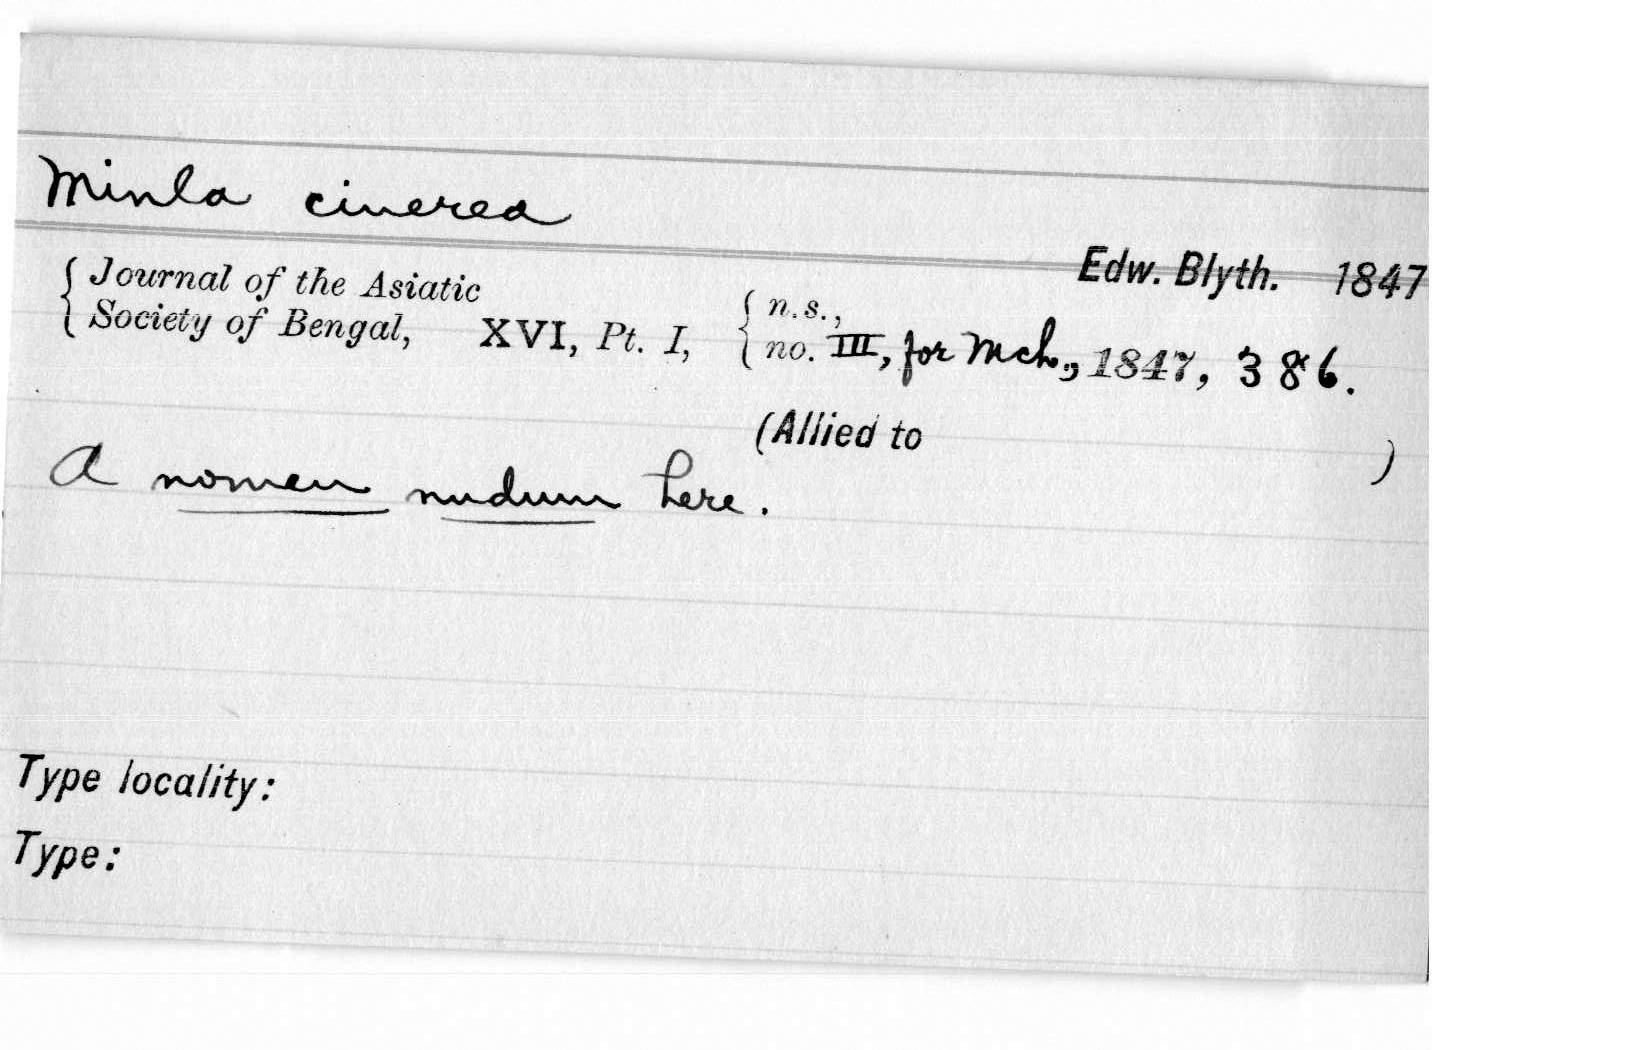 Minla cinerea
Edw. Blyth. 1847
{ Journal of the Asiatic
Society of Bengal, XVI, Pt. I, { n.s.,
no. III, for Mch., 1847, 386.
(Allied to )
A nomen nudum here.
Type locality:
Type: